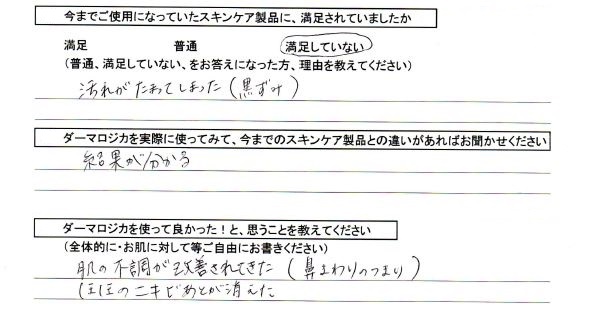 今までご使用になっていたスキンケア製品に、満足されていましたか
満足 普通 満足していない
(普通、満足していない、をお答えになった方、理由を教えてください)
汚れがたまってしまった(黒ずみ)
ダーマロジカを実際に使ってみて、今までのスキンケア製品との違いがあればお聞かせください
結果が分かる
ダーマロジカを使って良かった!と、思うことを教えてください
(全体的に・お肌に対して等ご自由にお書きください)
肌の不調が改善されてきた(鼻まわりのつまり)
ほほのニキビあとが消えた